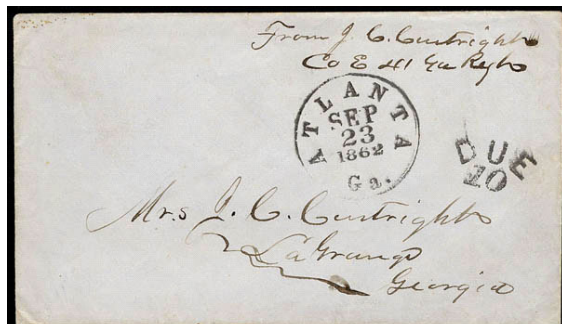 From J. C. Curtright
Co E 41 Ga Regt
ATLANTA
SEP
23
1862
Ga.
DUE
10
Mrs J. C. Curtright
LaGrange
Georgia